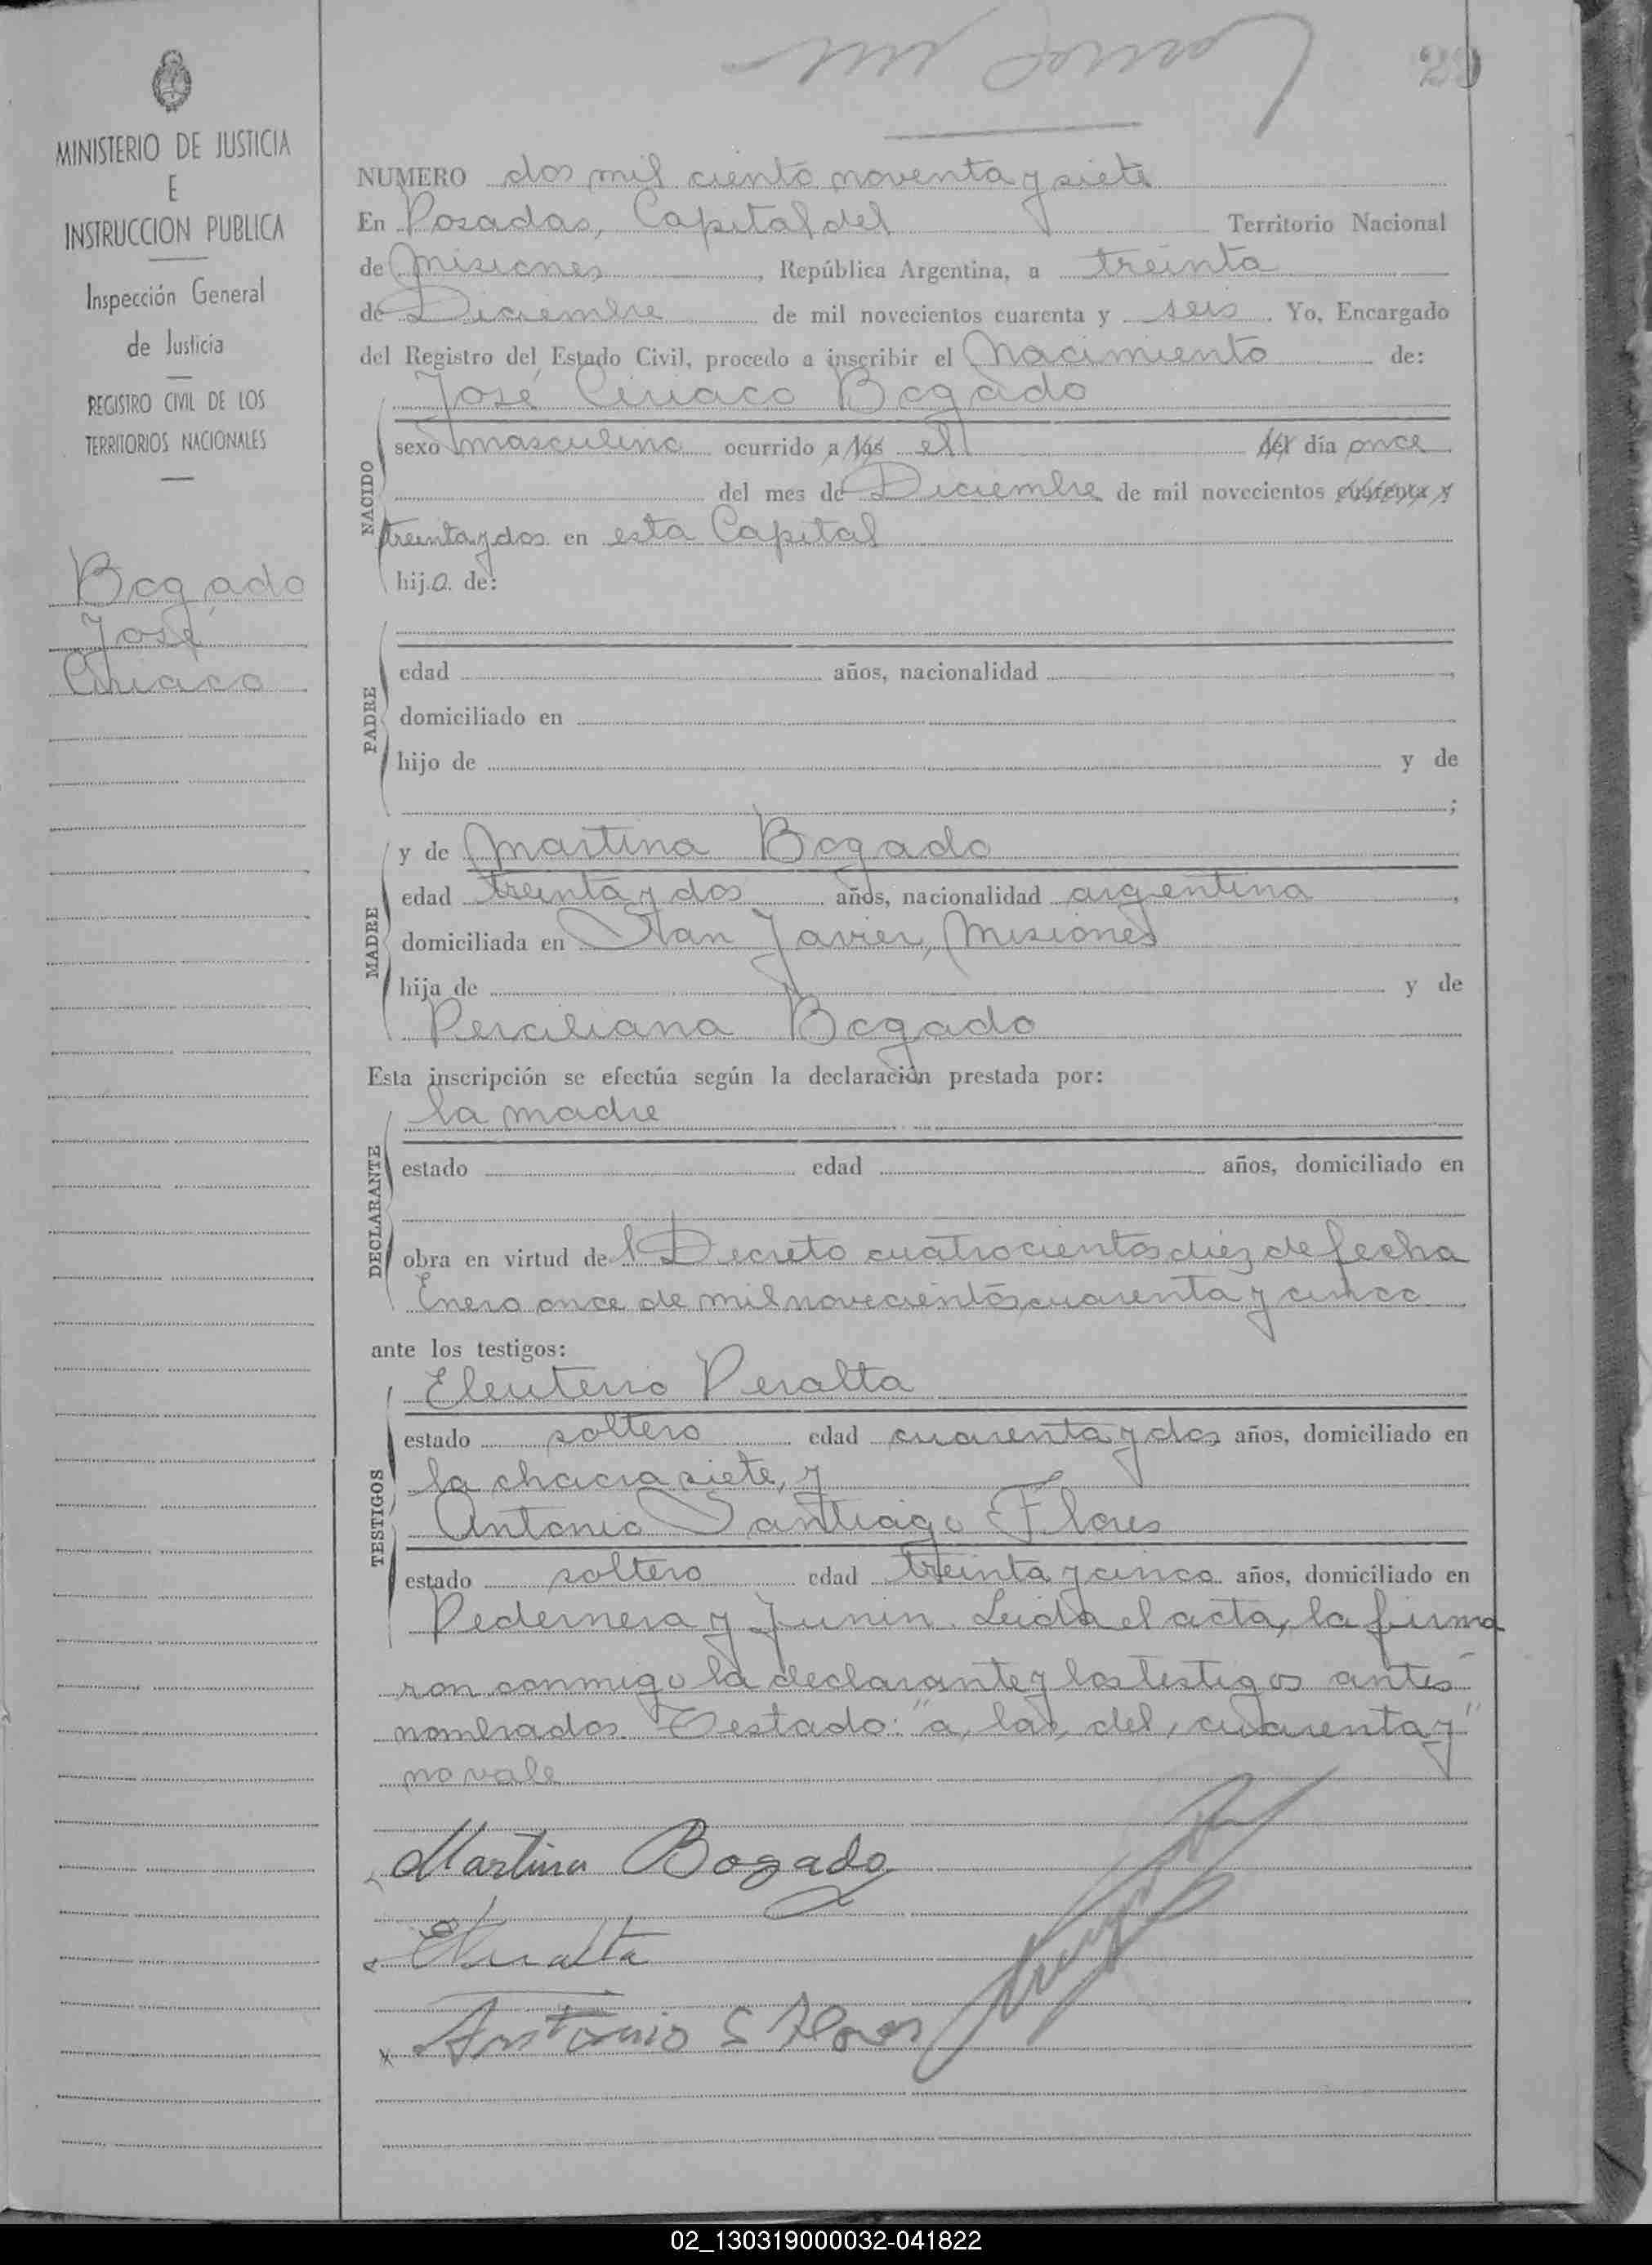 MINISTERIO DE JUSTICIA
E
INSTRUCCION PUBLICA
Inspección General
de Justicia
REGISTRO CIVIL DE LOS
TERRITORIOS NACIONALES
Bogado
José
Ciriaco
NUMERO dos mil ciento noventa y siete
En Posadas, Capital del Territorio Nacional
de Misiones, República Argentina, a treinta
de Diciembre de mil novecientos cuarenta y seis. Yo, Encargado
del Registro del Estado Civil, procedo a inscribir el Nacimiento de:
NACIDO
José Ciriaco Bogado
sexo masculino ocurrido a las el del día once
del mes de Diciembre de mil novecientos cuarenta y
treinta y dos en esta Capital
hijo. de:
PADRE
edad años, nacionalidad
domiciliado en
hijo de y de
;
MADRE
y de Martina Bogado
edad treinta y dos años, nacionalidad argentina,
domiciliada en San Javier, Misiones
hija de y de
Perciliana Bogado
Esta inscripción se efectúa según la declaración prestada por:
DECLARANTE
la madre
estado edad años, domiciliado en
obra en virtud del Decreto cuatrocientos diez de fecha
Enero once de mil novecientos cuarenta y cinco
ante los testigos:
TESTIGOS
Eleuterio Peralta
estado soltero edad cuarenta y dos años, domiciliado en
la chacra siete, y
Antonio Santiago Flores
estado soltero edad treinta y cinco años, domiciliado en
Pedernera y Junin. Leida el acta, la firma
ron conmigo la declarante y los testigos antes
nombrados. Testado: "a, las, del, cuarenta y"
no vale
Martina Bogado
EPeralta
Antonio S Flores
02_130319000032-041822